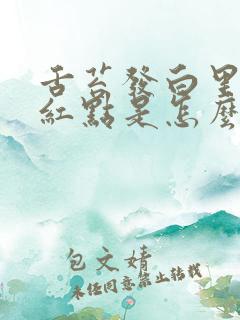 舌苔發白里
紅點是怎麼
包文婧
未经同意禁止转载